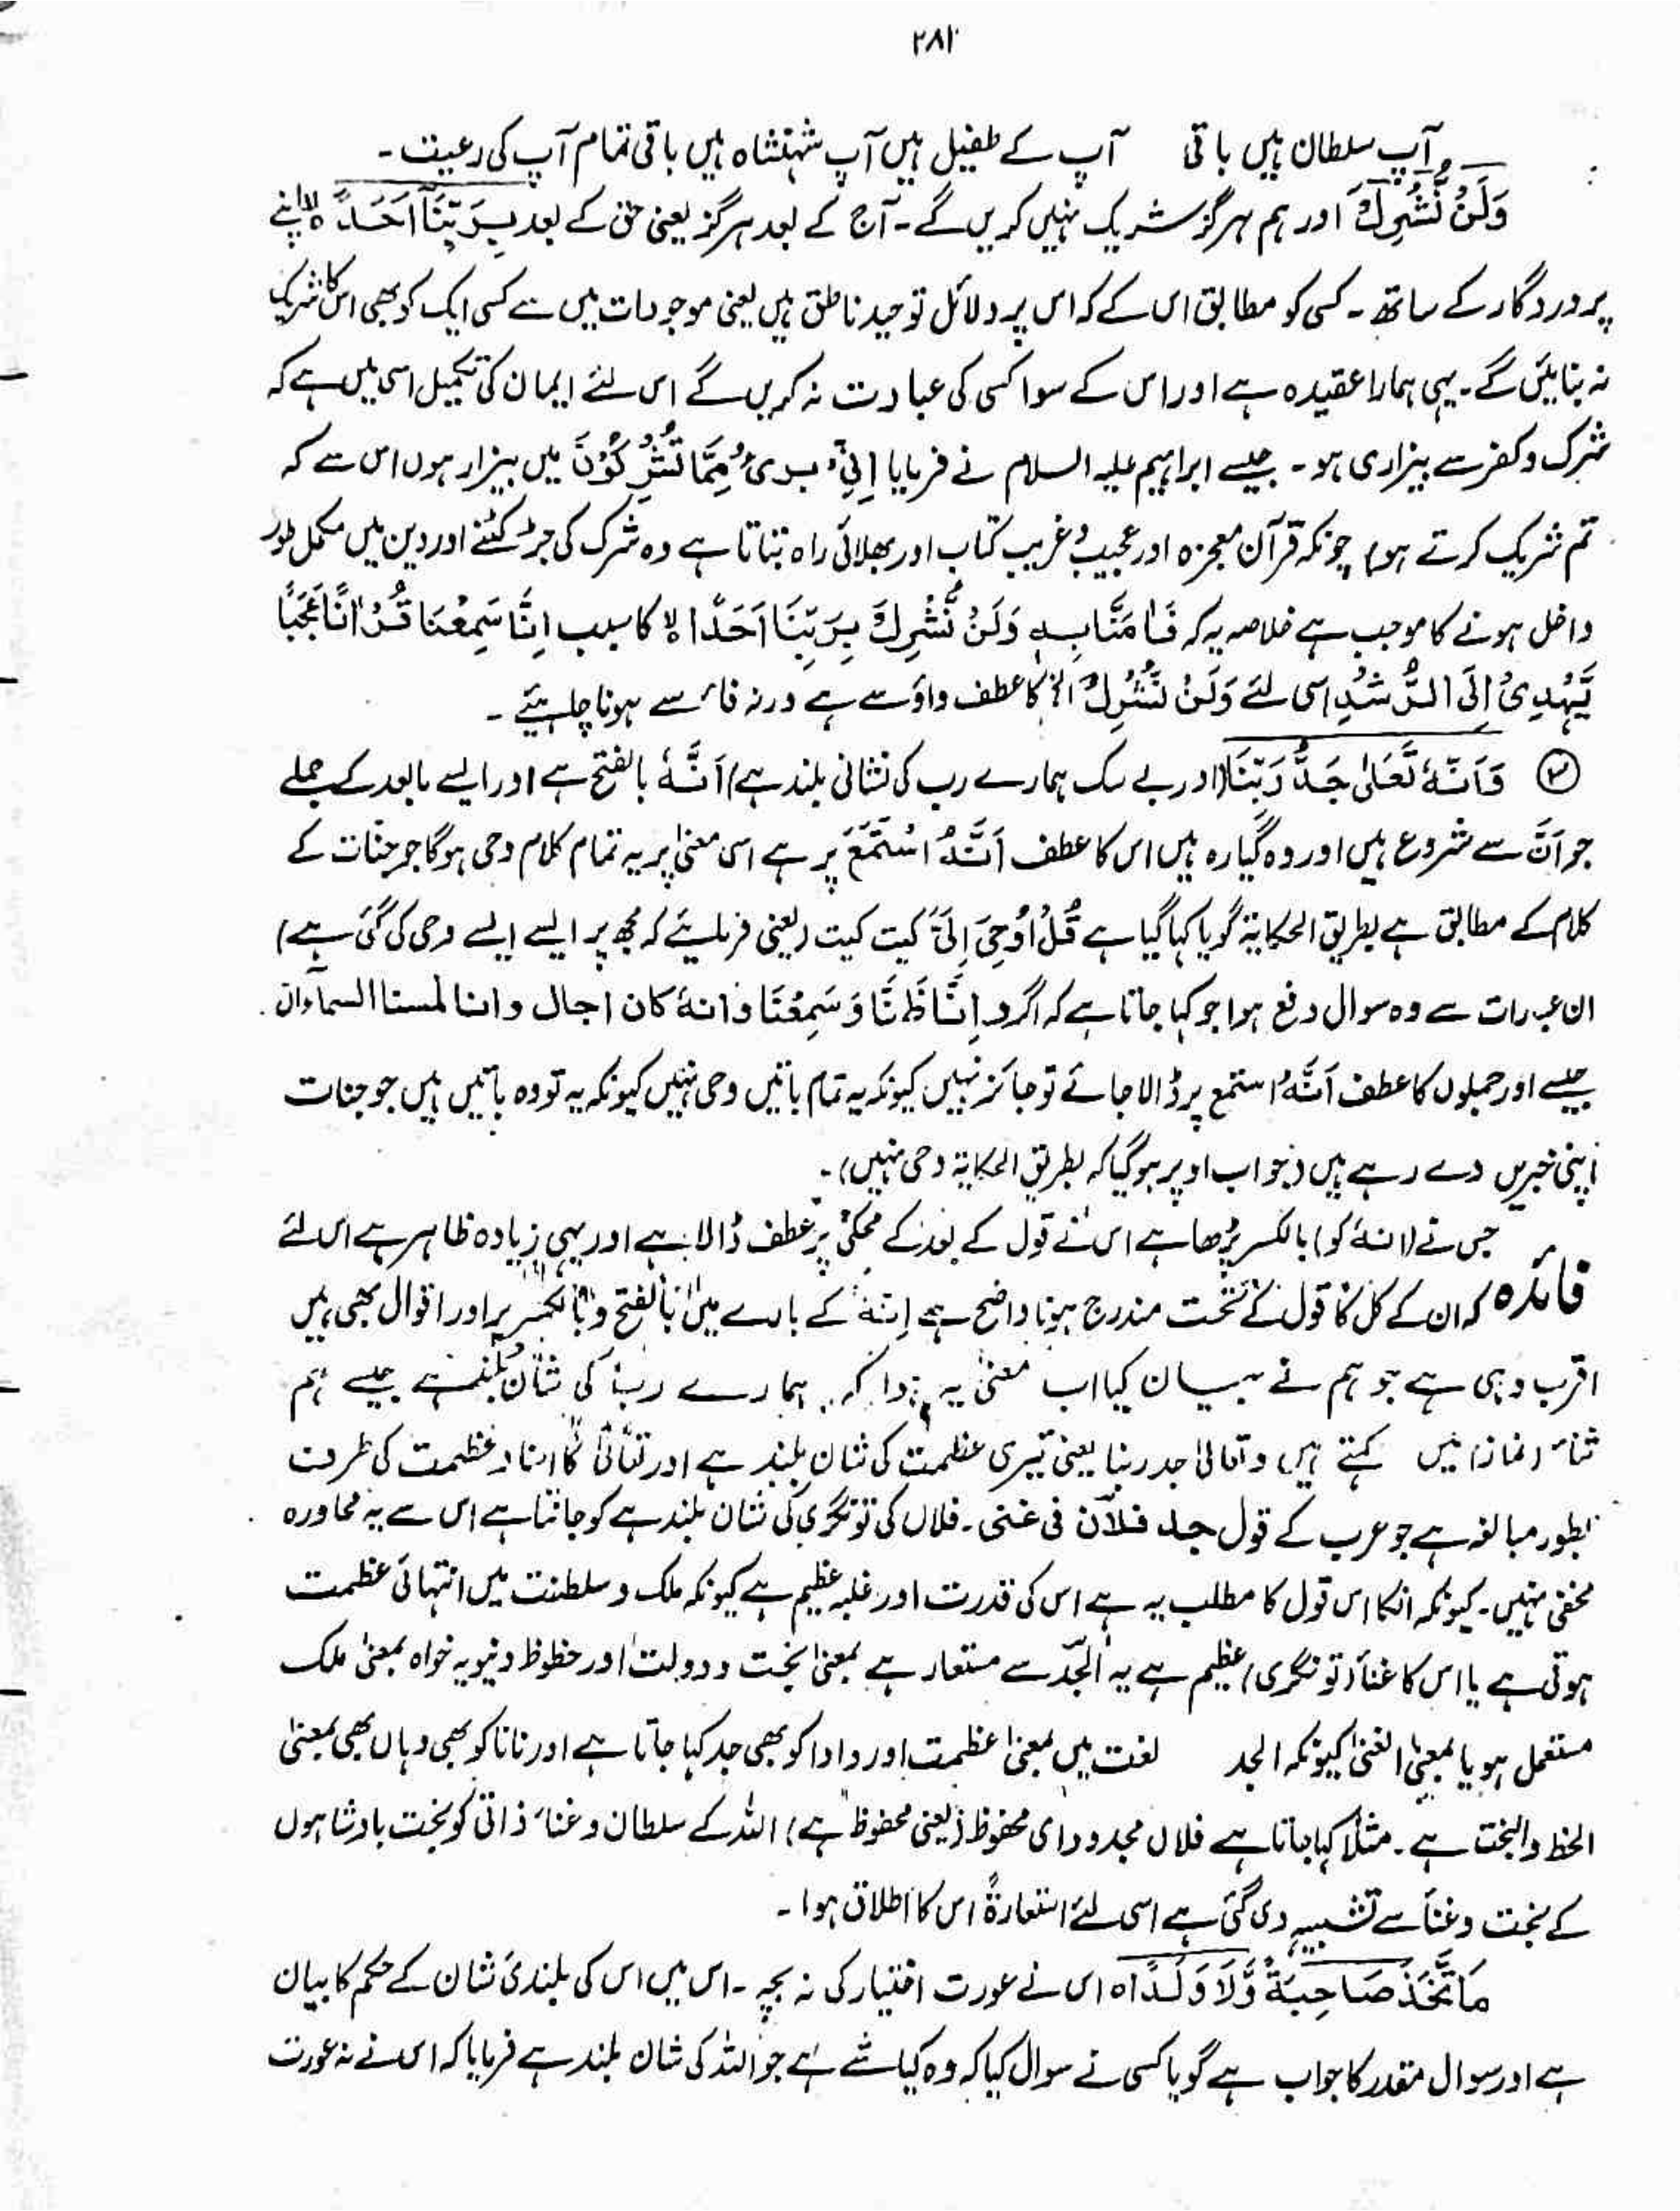 ۲۸۱
آپ سلطان ہیں باقی آپ کے طفیل ہیں آپ شہنشاہ ہیں باقی تمام آپ کی رعیت۔
وَلَنْ نُّشْرِكَ اور ہم ہرگز شریک نہیں کریں گے۔ آج کے بعد ہرگز یعنی حق کے بعد بِرَبِّنَآ اَحَدًا ۙ اپنے
پروردگار کے ساتھ۔ کسی کو مطابق اس کے کہ اس پر دلائل توحید ناطق ہیں یعنی موجودات میں سے کسی ایک کو بھی اس کا شریک
نہ بنائیں گے۔ یہی ہمارا عقیدہ ہے اور اس کے سوا کسی کی عبادت نہ کریں گے اس لئے ایمان کی تکمیل اسی میں ہے کہ
شرک و کفر سے بیزاری ہو۔ جیسے ابراہیم علیہ السلام نے فرمایا اِنِّیْ بریٔ مِمَّا تُشْرِكُوْنَ میں بیزار ہوں اس سے کہ
تم شریک کرتے ہو) چونکہ قرآن معجزہ اور عجیب و غریب کتاب اور بھلائی راہ بتاتا ہے وہ شرک کی جڑ کٹنے اور دین میں مکمل طور
داخل ہونے کا موجب ہے خلاصہ یہ کہ فَاٰمَنَّا بِہٖ وَلَنْ نُّشْرِكَ بِرَبِّنَا اَحَدًا لا کا سبب اِنَّا سَمِعْنَا قُرْاٰنًا عَجَبًا
یَّھْدِیْ اِلَی الرُّشْدِ اسی لئے وَلَنْ نُّشْرِكَ الخ کا عطف واؤ سے ہے ورنہ فاء سے ہونا چاہیئے۔
۳ وَاَنَّہٗ تَعٰلٰی جَدُّ رَبِّنَا (اور بے شک ہمارے رب کی نشانی بلند ہے) اَنَّہٗ بالفتح ہے اور ایسے مابعد کے جملے
جو اَنَّ سے شروع ہیں اور وہ گیارہ ہیں اس کا عطف اَنَّہُ اسْتَمَعَ پر ہے اسی معنیٰ پر یہ تمام کلام وحی ہوگا جو جنات کے
کلام کے مطابق ہے بطریق الحکایۃ گویا کہا گیا ہے قُلْ اُوْحِیَ اِلَیَّ کیت کیت (یعنی فرمایئے کہ مجھ پر ایسے ایسے وحی کی گئی ہے)
ان عبارات سے وہ سوال دفع ہوا جو کہا جاتا ہے کہ اگر و اِنَّا ظَنَنَّا وَسَمِعْنَا وَانہٗ کان رجال وانا لمسنا السماء وان
جیسے اور جملوں کا عطف اَنَّہُ استمع پر ڈالا جائے تو جائز نہیں کیونکہ یہ تمام باتیں وحی نہیں کیونکہ یہ تو وہ باتیں ہیں جو جنات
اپنی خبریں دے رہے ہیں (جواب اوپر ہوگیا کہ بطریق الحکایۃ وحی نہیں)۔
فائدہ جس نے (انہٗ کو) بالکسر پڑھا ہے اس نے قول کے بعد کے محکی پر عطف ڈالا ہے اور یہی زیادہ ظاہر ہے اس لئے
کہ ان کے کل کا قول کے تحت مندرج ہونا واضح ہے اِنہٗ کے بارے میں بالفتح و بالکسر پر اور اقوال بھی ہیں
اقرب وہی ہے جو ہم نے بیان کیا اب معنیٰ یہ ہوا کہ ہمارے رب کی شان بلند ہے جیسے ہم
ثناء (نماز) میں کہتے ہیں وتعالیٰ جد ربنا یعنی تیری عظمت کی شان بلند ہے اور تعالیٰ کا اسناد عظمت کی طرف
بطور مبالغہ ہے جو عرب کے قول جد فلان فی غنی۔ فلاں کی تونگری کی شان بلند ہے کو جانتا ہے اس سے یہ محاورہ
مخفی نہیں۔ کیونکہ انکا اس قول کا مطلب یہ ہے اس کی قدرت اور غلبہ عظیم ہے کیونکہ ملک و سلطنت میں انتہائی عظمت
ہوتی ہے یا اس کا غناء (تونگری) عظیم ہے یہ الجدّ سے مستعار ہے بمعنیٰ بخت و دولت اور حظوظ دنیویہ خواہ بمعنیٰ ملک
مستعمل ہو یا بمعنیٰ الغنیٰ کیونکہ الجد لغت میں بمعنیٰ عظمت اور دادا کو بھی جد کہا جاتا ہے اور نانا کو بھی وہاں بھی بمعنیٰ
الحظ والبخت ہے۔ مثلاً کہا جاتا ہے فلاں مجدود ای محفوظ (یعنی محفوظ ہے) اللہ کے سلطان و غناء ذاتی کو بخت بادشاہوں
کے بخت و غنا سے تشبیہ دی گئی ہے اسی لئے استعارۃً اس کا اطلاق ہوا۔
مَاتَّخَذَ صَاحِبَۃً وَّلَا وَلَدًا ہ اس نے عورت اختیار کی نہ بچہ۔ اس میں اس کی بلندیٔ شان کے حکم کا بیان
ہے اور سوال مقدر کا جواب ہے گویا کسی نے سوال کیا کہ وہ کیا شے ہے جو اللہ کی شان بلند ہے فرمایا کہ اس نے نہ عورت